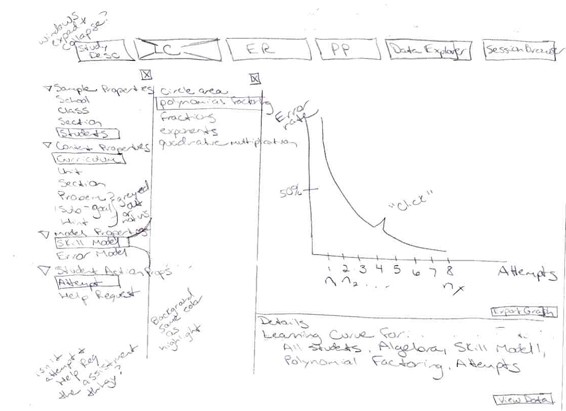 windows
expand +
collapse?
Study
Desc
IC
ER
PP
Data Explorer
Session Browser
X
X
▽ Sample Properties
School
Class
Section
Students
▽ Content Properties
Curriculum
Unit
Section
Problem
Sub-goal
Hint
? greyed
out
or
not vis
▽ Model Properties
Skill Model
Error Model
▽ Student Action Props
Attempt
Help Request
circle area
polynomial factoring
fractions
exponents
quadratic multiplication
Background
same color
as
highlight
Error
rate
50%
"click"
1 2 3 4 5 6 7 8
Attempts
n₁ n₂ . . . . nₓ
Export Graph
Details
Learning Curve For...
All students, Algebra, Skill Model 1,
Polynomial Factoring, Attempts
View Data
attempt +
Help Req
the assistment
thingy?